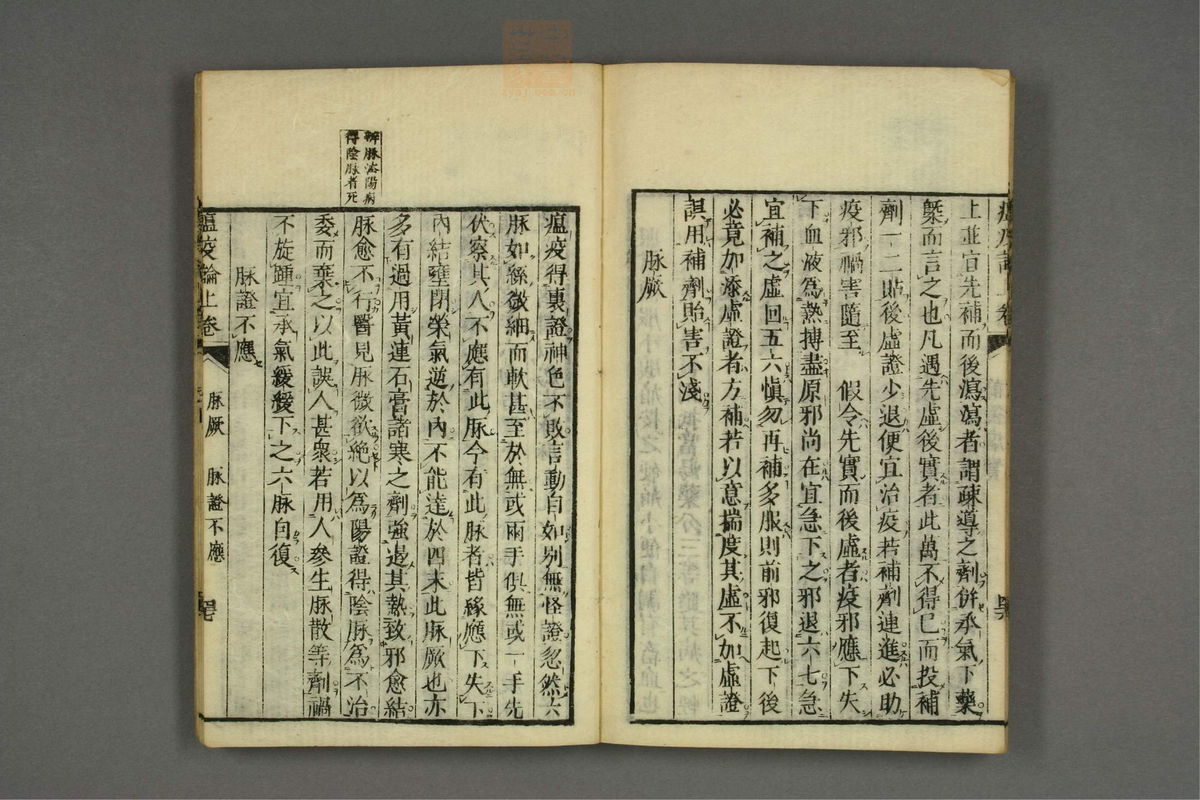 上並宜先補而後瀉瀉者謂疎導之劑併承氣下藥
槩而言之也凡遇先虛後實者此萬不得已而投補
劑一二貼後虛證少退便宜治疫若補劑連進必助
疫邪禍害隨至　假令先實而後虛者疫邪應下失
下血液為熱搏盡原邪尚在宜急下之邪退六七急
宜補之虛回五六愼勿再補多服則前邪復起下後
必竟加添虛證者方補若以意揣度其虛不加虛證
誤用補劑貽害不淺
脉厥
瘟疫得裏證神色不敗言動自如別無怪證忽然六
脉如絲微細而軟甚至於無或兩手俱無或一手先
伏察其人不應有此脉今有此脉者皆緣應下失下
內結壅閉榮氣逆於內不能達於四末此脉厥也亦
多有過用黃連石膏諸寒之劑強遏其熱致邪愈結
脉愈不行醫見脉微欲絕以為陽證得陰脉為不治
委而棄之以此誤人甚衆若用人參生脉散等劑禍
不旋踵宜承氣緩緩下之六脉自復
脉證不應
辨脉法陽病
得陰脉者死
瘟疫論上卷
脉厥　脉證不應